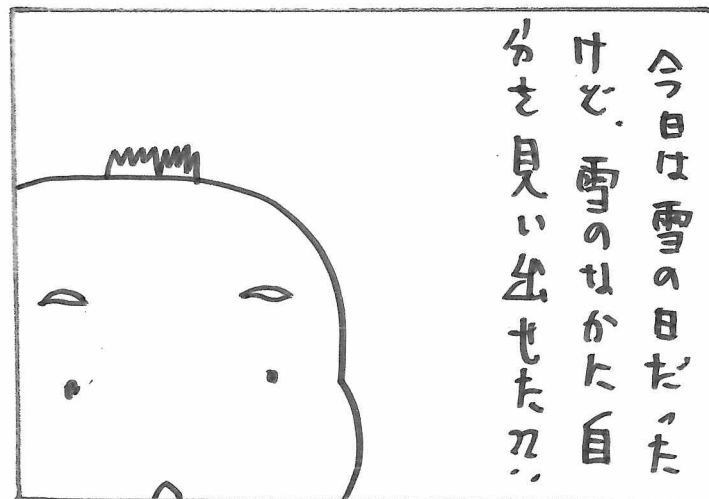 今日は雪の日だった
けど、雪のなかに自
分を見い出せた??